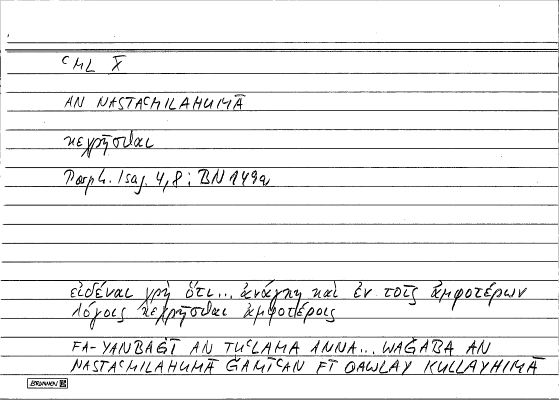 ᶜML X̅
AN NASTAᶜMILAHUMĀ
κεχρῆσθαι
Porph. Isag. 4,8 ; BN 149a
εἰδέναι χρὴ ὅτι... ἀνάγκη καὶ ἐν τοῖς ἀμφοτέρων
λόγοις κεχρῆσθαι ἀμφοτέροις
FA-YANBAĠĪ AN TUᶜLAMA ANNA... WAĞABA AN
NASTAᶜMILAHUMĀ ĞAMĪᶜAN FĪ QAWLAY KULLAYHIMĀ
BRUNNEN